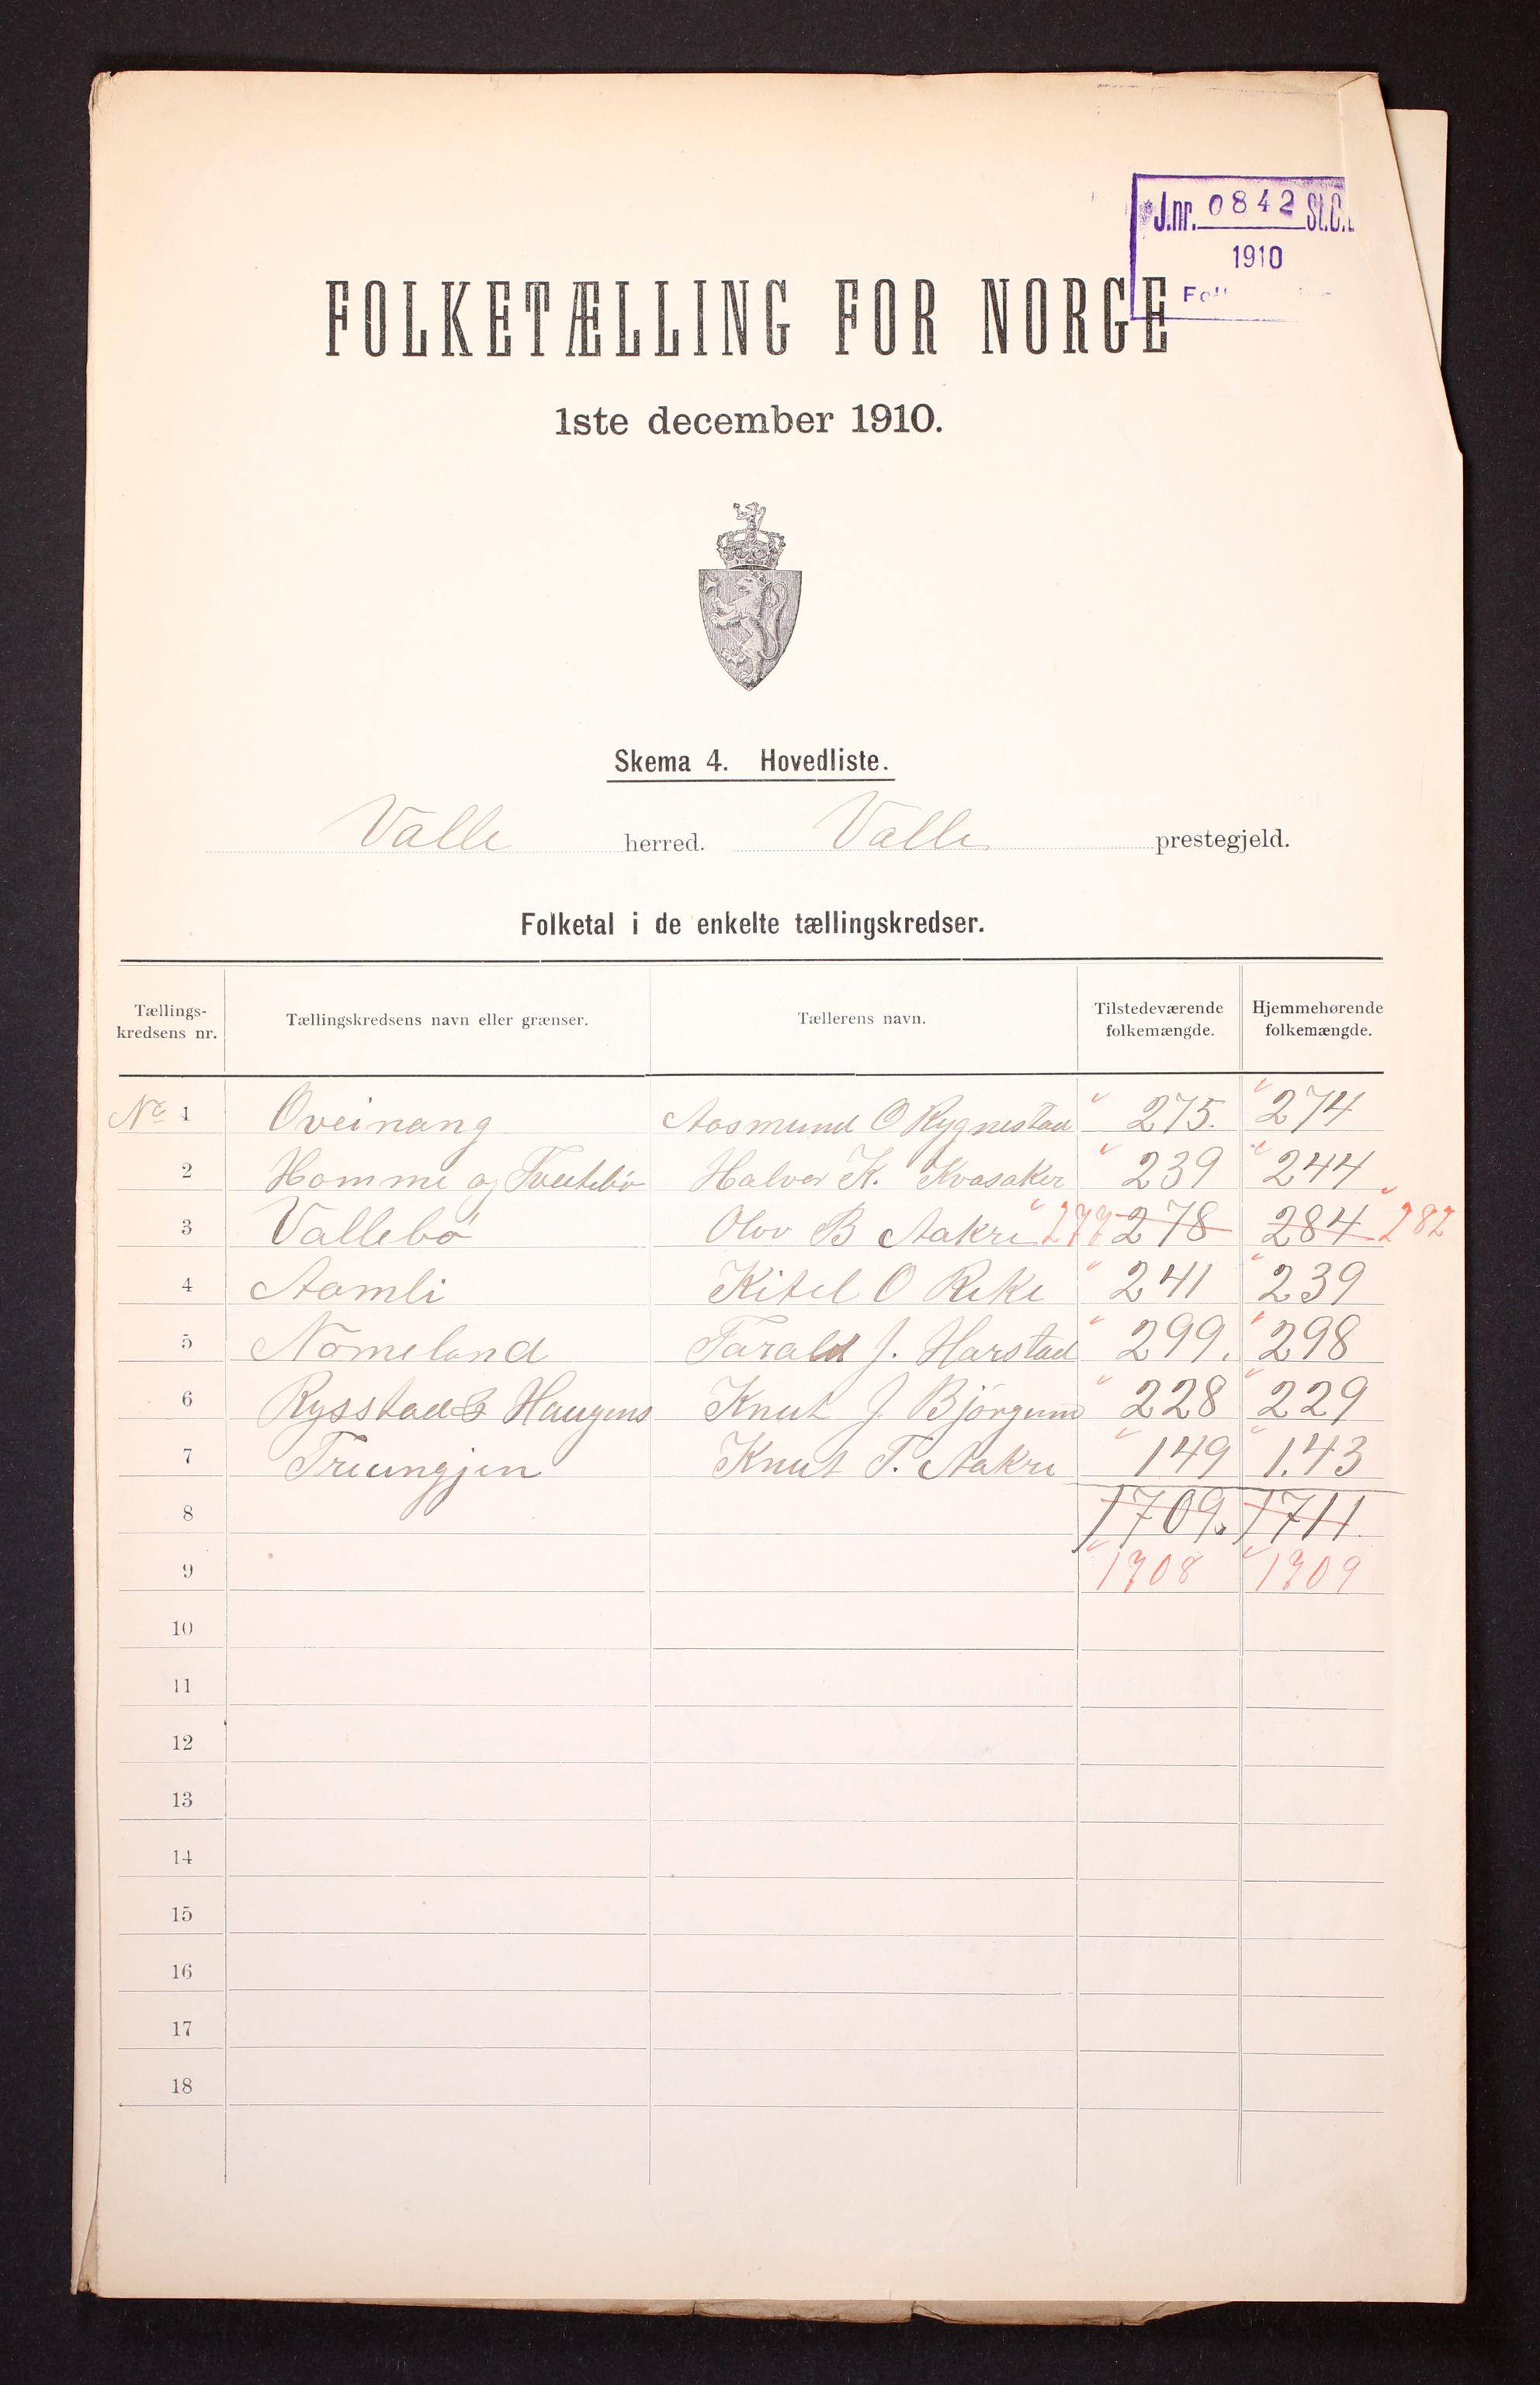 J.nr. 0842 St.C.
1910
FOLKETÆLLING FOR NORGE
1ste december 1910.
Skema 4. Hovedliste.
Valle herred. Valle prestegjeld.
Folketal i de enkelte tællingskredser.
Tællings-kredsens nr. Tællingskredsens navn eller grænser. Tællerens navn. Tilstedeværende folkemængde. Hjemmehørende folkemængde.
No 1 Oveinang Aasmund O Rygnestad 275. 274
2 Homme og Tveitebø Halvor K. Kvasaker 239 244
3 Vallebø Olov B Aakre 277 278 284 282
4 Aamli Kitel O Rike 241 239
5 Nomeland Tarald J. Harstad 299. 298
6 Rysstad & Haugens Knut J Björgum 228 229
7 Treungjen Knut T. Aakre 149 1.43
8 1709. 1711.
9 1708 1709
10
11
12
13
14
15
16
17
18